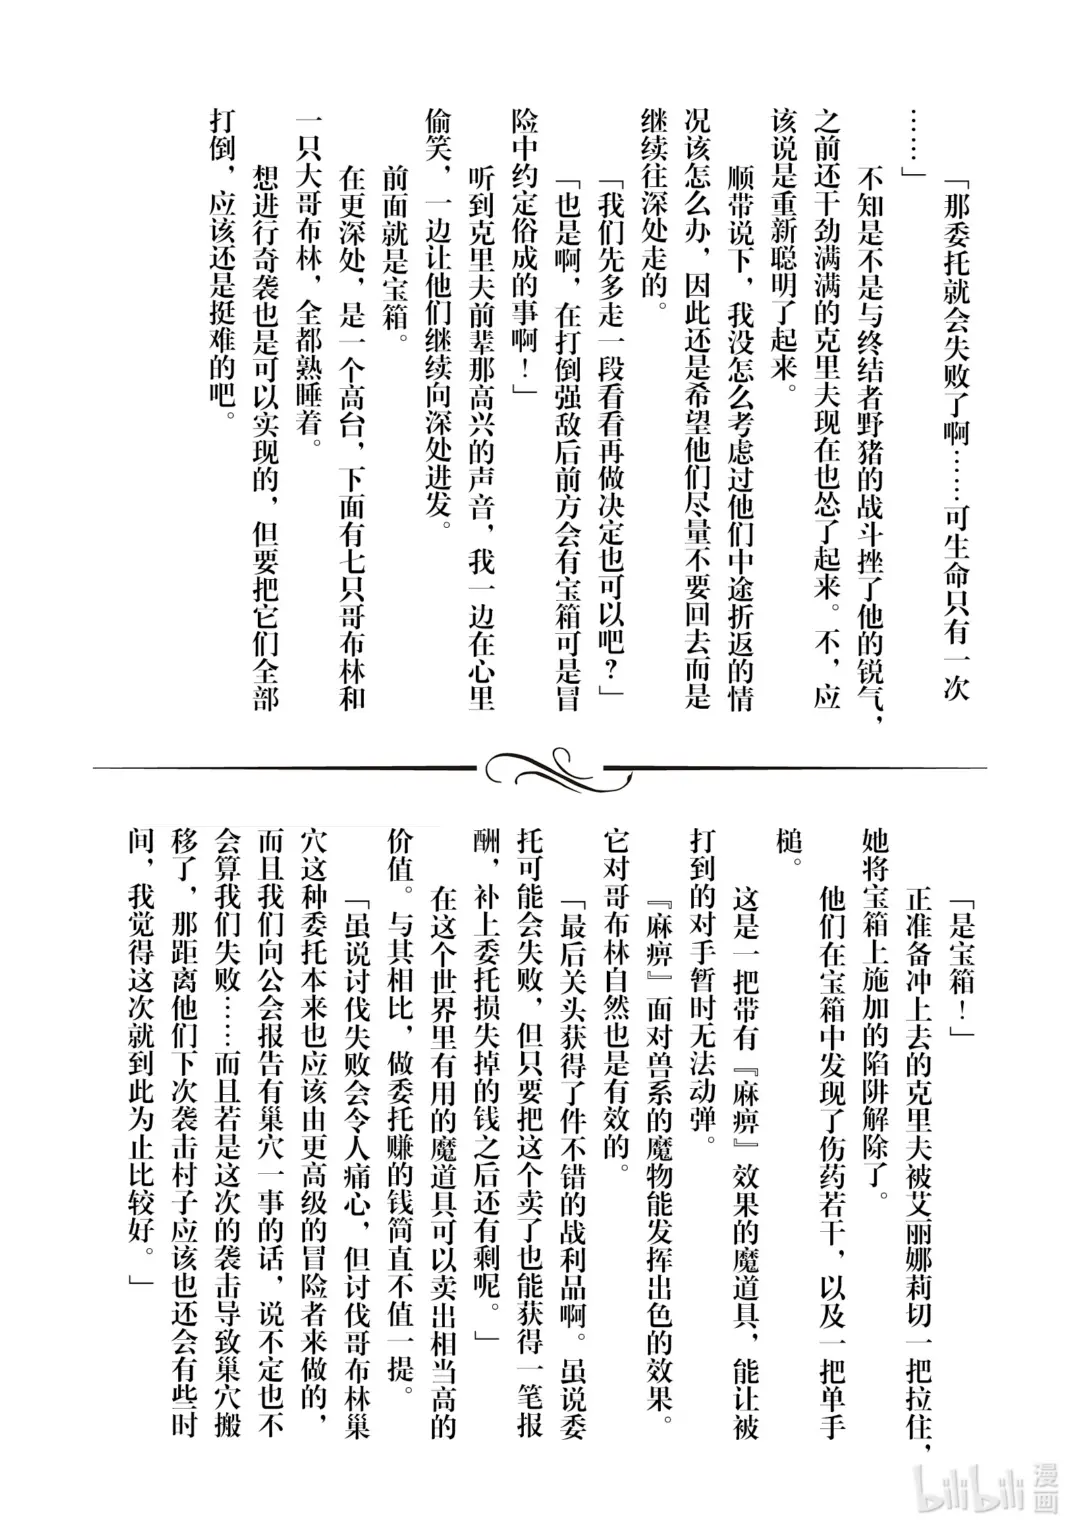 「那委托就会失败了啊……可生命只有一次
……」
不知是不是与终结者野猪的战斗挫了他的锐气，
之前还干劲满满的克里夫现在也怂了起来。不，应
该说是重新聪明了起来。
顺带说下，我没怎么考虑过他们中途折返的情
况该怎么办，因此还是希望他们尽量不要回去而是
继续往深处走的。
「我们先多走一段看看再做决定也可以吧？」
「也是啊，在打倒强敌后前方会有宝箱可是冒
险中约定俗成的事啊！」
听到克里夫前辈那高兴的声音，我一边在心里
偷笑，一边让他们继续向深处进发。
前面就是宝箱。
在更深处，是一个高台，下面有七只哥布林和
一只大哥布林，全都熟睡着。
想进行奇袭也是可以实现的，但要把它们全部
打倒，应该还是挺难的吧。
「是宝箱！」
正准备冲上去的克里夫被艾丽娜莉切一把拉住，
她将宝箱上施加的陷阱解除了。
他们在宝箱中发现了伤药若干，以及一把单手
槌。
这是一把带有『麻痹』效果的魔道具，能让被
打到的对手暂时无法动弹。
『麻痹』面对兽系的魔物能发挥出色的效果。
它对哥布林自然也是有效的。
「最后关头获得了件不错的战利品啊。虽说委
托可能会失败，但只要把这个卖了也能获得一笔报
酬，补上委托损失掉的钱之后还有剩呢。」
在这个世界里有用的魔道具可以卖出相当高的
价值。与其相比，做委托赚的钱简直不值一提。
「虽说讨伐失败会令人痛心，但讨伐哥布林巢
穴这种委托本来也应该由更高级的冒险者来做的，
而且我们向公会报告有巢穴一事的话，说不定也不
会算我们失败……而且若是这次的袭击导致巢穴搬
移了，那距离他们下次袭击村子应该也还会有些时
间，我觉得这次就到此为止比较好。」
bilibili漫画